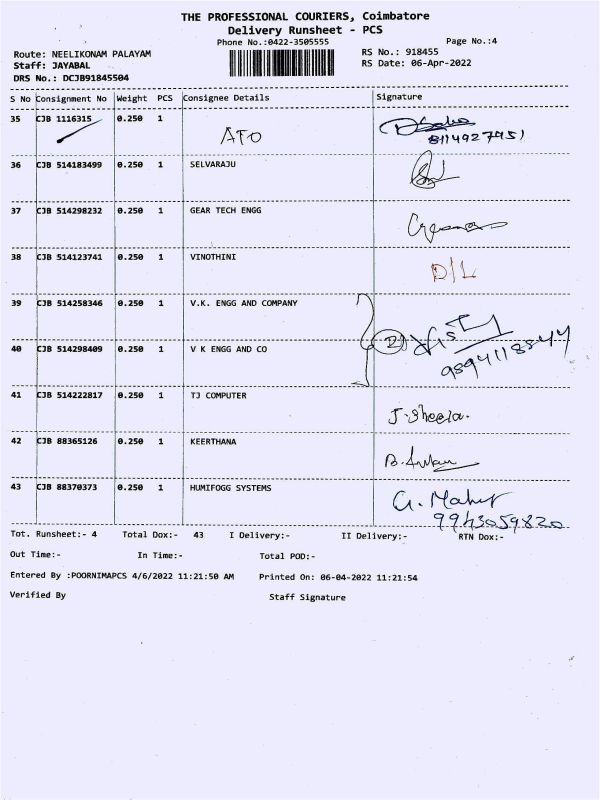 THE PROFESSIONAL COURIERS, Coimbatore
Delivery Runsheet - PCS
Phone No.:0422-3505555
Page No.:4
Route: NEELIKONAM PALAYAM
RS No.: 918455
Staff: JAYABAL
RS Date: 06-Apr-2022
DRS No.: DCJB91845504
S No Consignment No Weight PCS Consignee Details Signature
35 CJB 1116315 0.250 1 AFO
8114927951
36 CJB 514183499 0.250 1 SELVARAJU
37 CJB 514298232 0.250 1 GEAR TECH ENGG
38 CJB 514123741 0.250 1 VINOTHINI D/L
39 CJB 514258346 0.250 1 V.K. ENGG AND COMPANY
40 CJB 514298409 0.250 1 V K ENGG AND CO
9894118844
41 CJB 514222817 0.250 1 TJ COMPUTER J. Sheela.
42 CJB 88365126 0.250 1 KEERTHANA
43 CJB 88370373 0.250 1 HUMIFOGG SYSTEMS
9943059820
Tot. Runsheet:- 4 Total Dox:- 43 I Delivery:- II Delivery:- RTN Dox:-
Out Time:- In Time:- Total POD:-
Entered By :POORNIMAPCS 4/6/2022 11:21:50 AM Printed On: 06-04-2022 11:21:54
Verified By Staff Signature